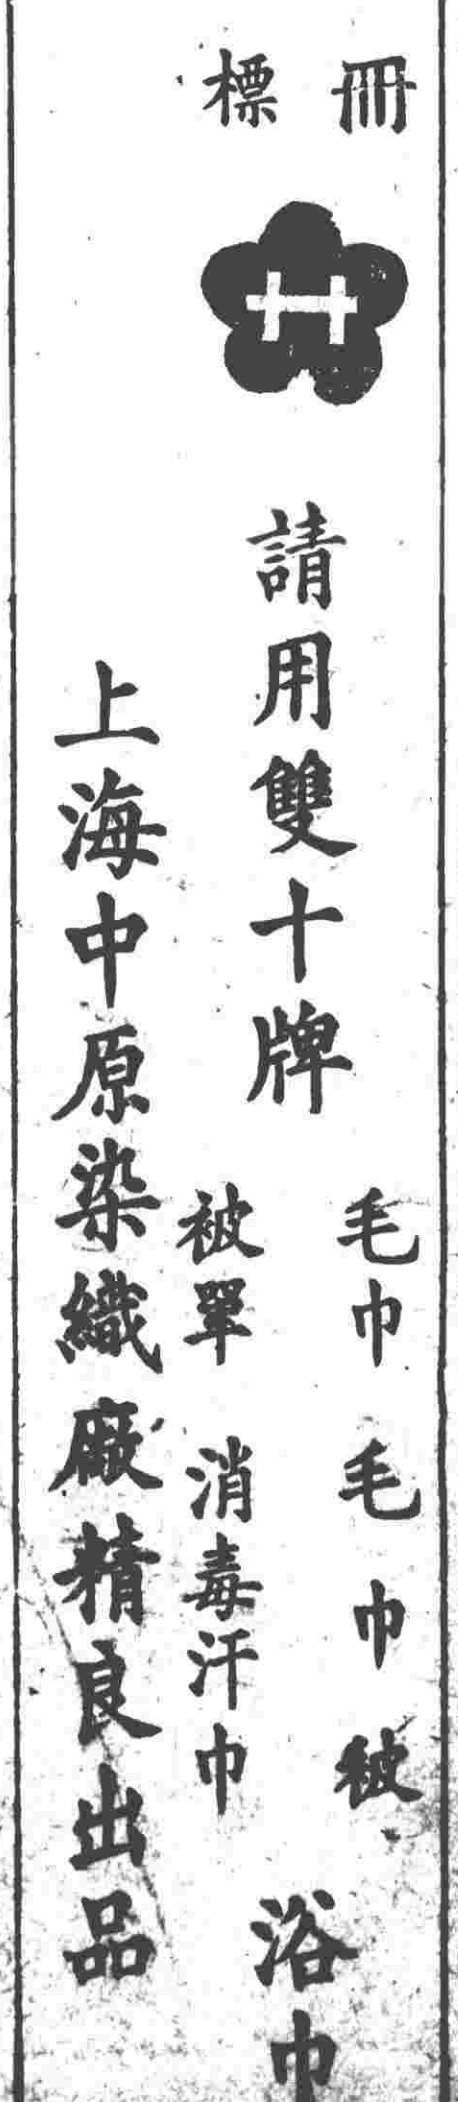 冊標
請用雙十牌
毛巾 毛巾被
被單 消毒汗巾
浴巾
上海中原染織廠精良出品